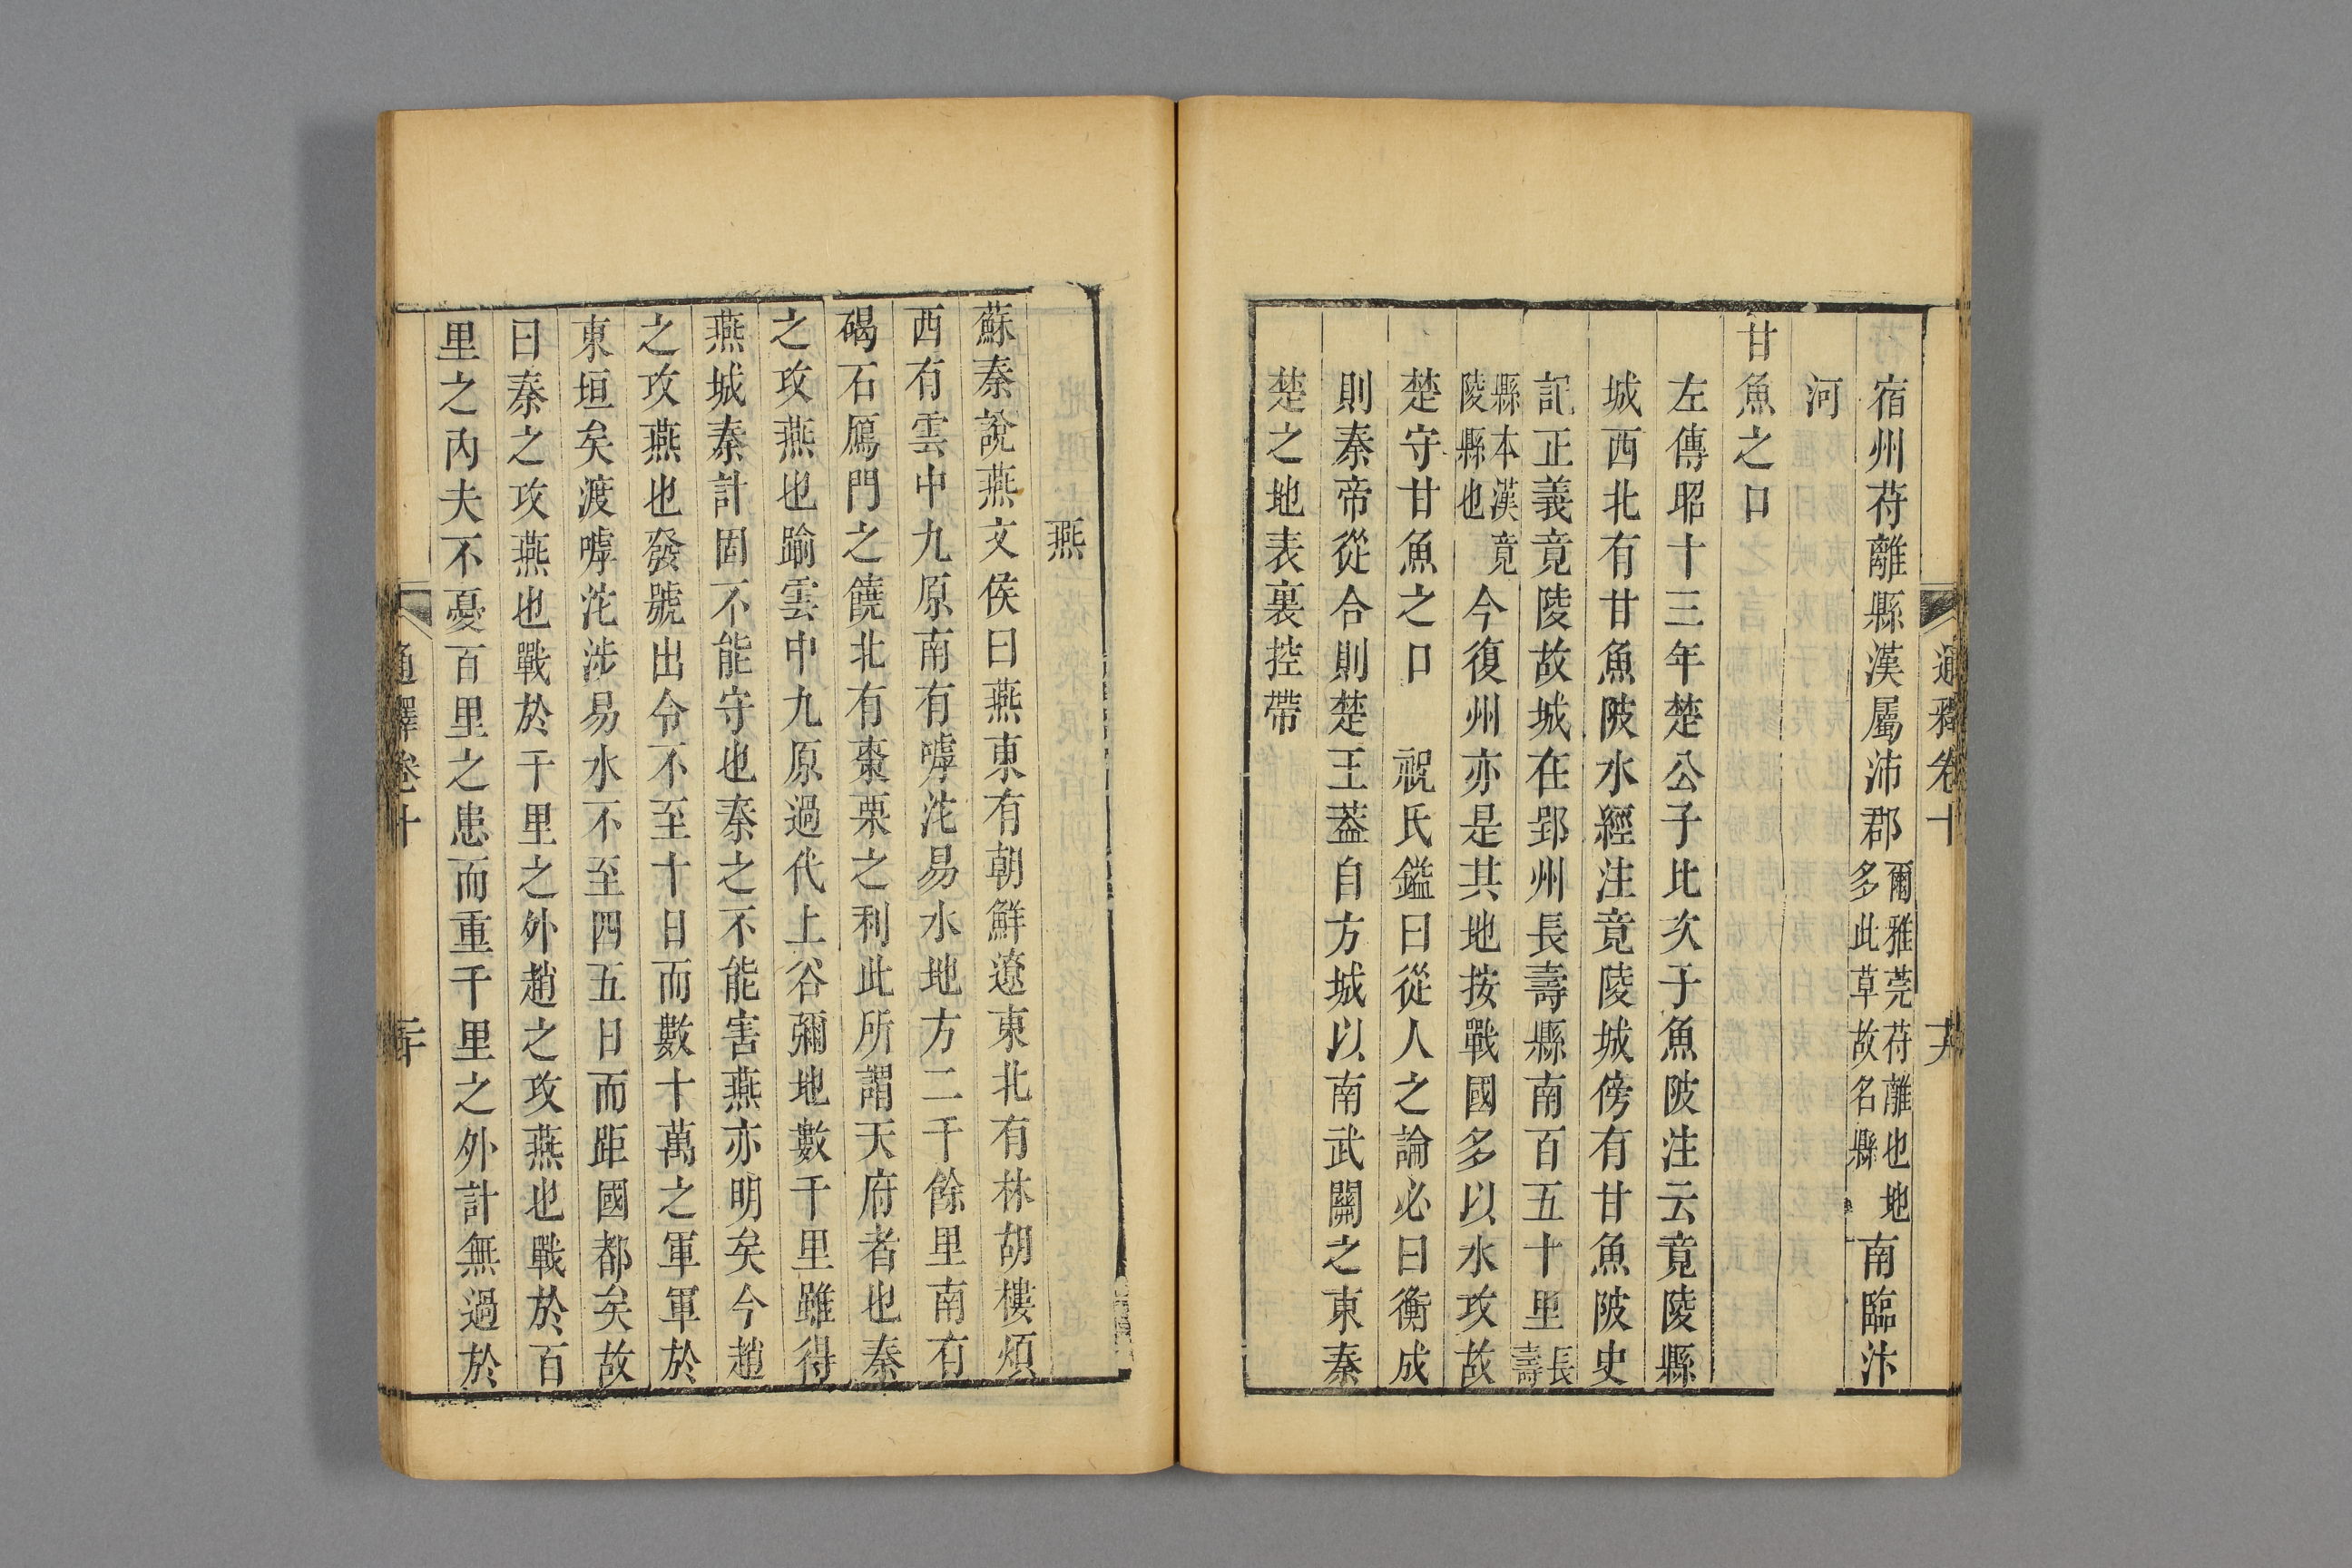 宿州苻離縣漢屬沛郡爾雅莞苻離也地多此草故名縣南臨汴
河
甘魚之口
左傳昭十三年楚公子比次于魚陂注云竟陵縣
城西北有甘魚陂水經注竟陵城傍有甘魚陂史
記正義竟陵故城在郢州長壽縣南百五十里長壽
縣本漢竟陵縣也今復州亦是其地按戰國多以水攻故
楚守甘魚之口 祝氏鑑曰從人之論必曰衡成
則秦帝從合則楚王蓋自方城以南武關之東秦
楚之地表裏控帶
燕
蘇秦說燕文侯曰燕東有朝鮮遼東北有林胡樓煩
西有雲中九原南有嘑沱易水地方二千餘里南有
碣石鴈門之饒北有棗栗之利此所謂天府者也秦
之攻燕也踰雲中九原過代上谷彌地數千里雖得
燕城秦計固不能守也秦之不能害燕亦明矣今趙
之攻燕也發號出令不至十日而數十萬之軍軍於
東垣矣渡嘑沱涉易水不至四五日而距國都矣故
曰秦之攻燕也戰於千里之外趙之攻燕也戰於百
里之內夫不憂百里之患而重千里之外計無過於